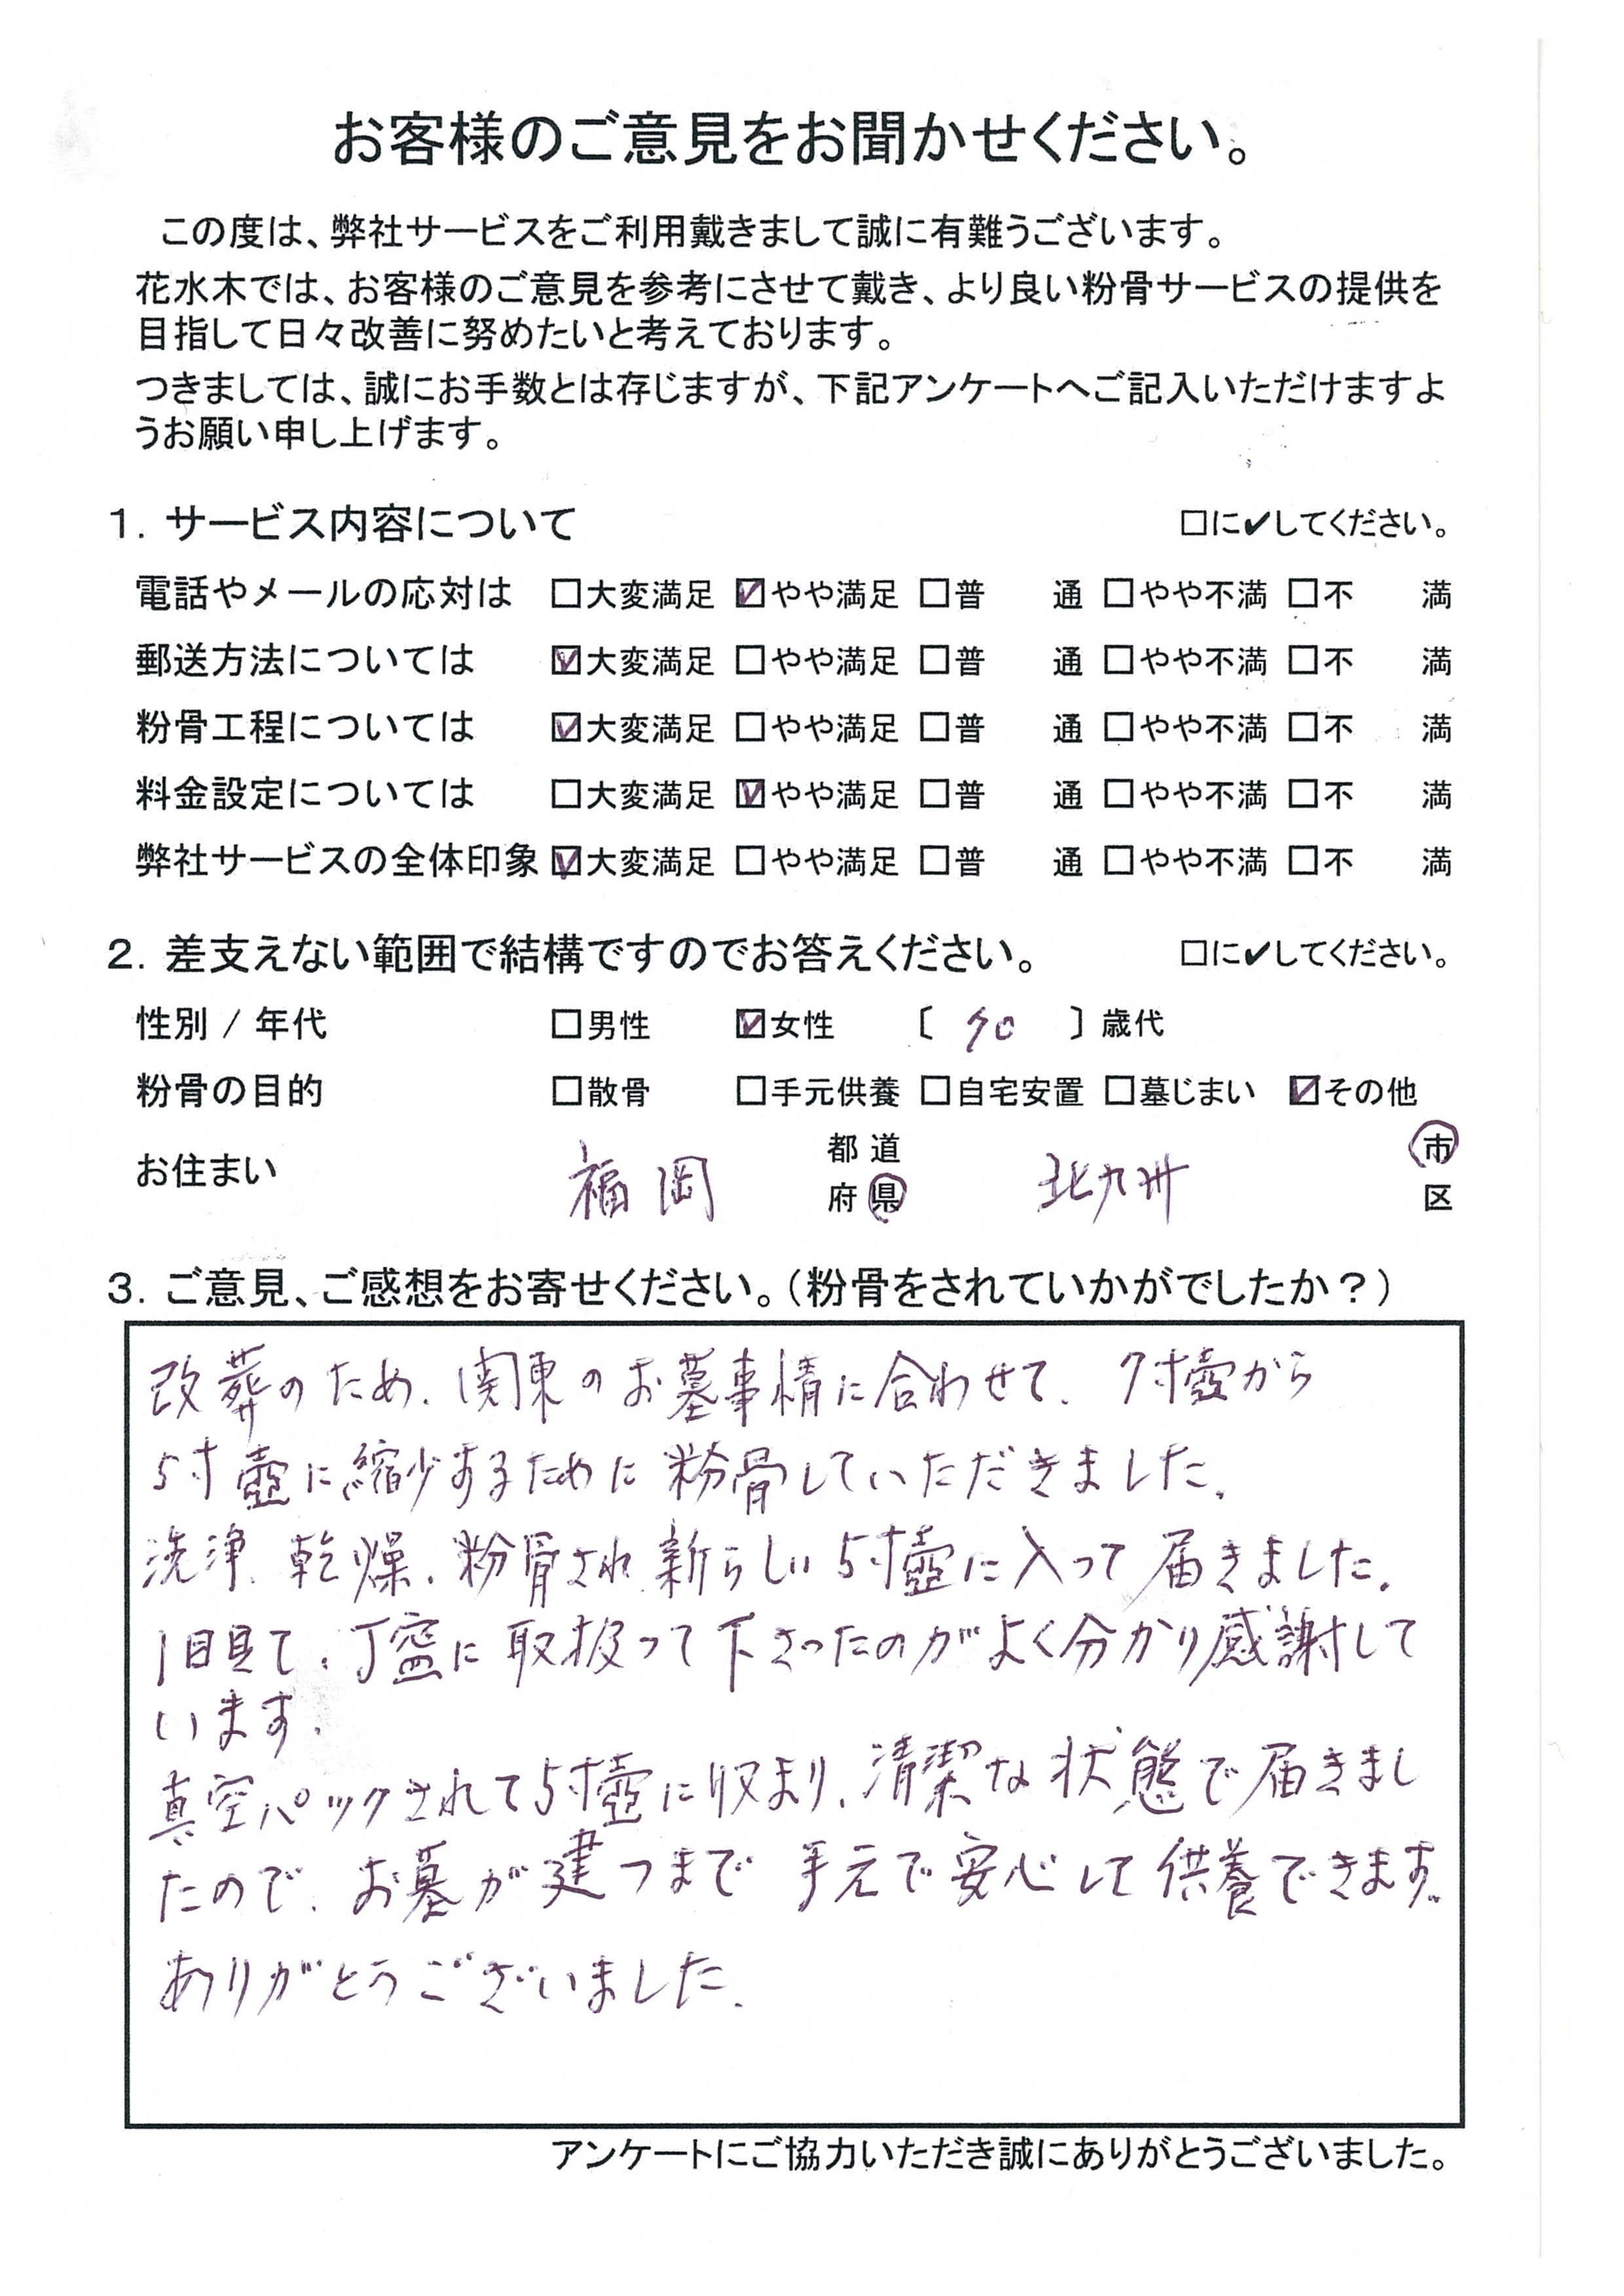 お客様のご意見をお聞かせください。
この度は、弊社サービスをご利用戴きまして誠に有難うございます。
花水木では、お客様のご意見を参考にさせて戴き、より良い粉骨サービスの提供を
目指して日々改善に努めたいと考えております。
つきましては、誠にお手数とは存じますが、下記アンケートへご記入いただけますよ
うお願い申し上げます。
1. サービス内容について □に✔してください。
電話やメールの応対は □大変満足 ☑やや満足 □普 通 □やや不満 □不 満
郵送方法については ☑大変満足 □やや満足 □普 通 □やや不満 □不 満
粉骨工程については ☑大変満足 □やや満足 □普 通 □やや不満 □不 満
料金設定については □大変満足 ☑やや満足 □普 通 □やや不満 □不 満
弊社サービスの全体印象 ☑大変満足 □やや満足 □普 通 □やや不満 □不 満
2. 差支えない範囲で結構ですのでお答えください。 □に✔してください。
性別 / 年代 □男性 ☑女性 〔 70 〕歳代
粉骨の目的 □散骨 □手元供養 □自宅安置 □墓じまい ☑その他
お住まい 福岡 都道府県 北九州 市区
3. ご意見、ご感想をお寄せください。（粉骨をされていかがでしたか？）
改葬のため、関東のお墓事情に合わせて、7寸壺から
5寸壺に縮少するために粉骨していただきました。
洗浄、乾燥、粉骨され新らしい5寸壺に入って届きました。
1目見て、丁寧に取扱って下さったのがよく分かり感謝して
います。
真空パックされて5寸壺に収まり、清潔な状態で届きまし
たので、お墓が建つまで手元で安心して供養できます。
ありがとうございました。
アンケートにご協力いただき誠にありがとうございました。